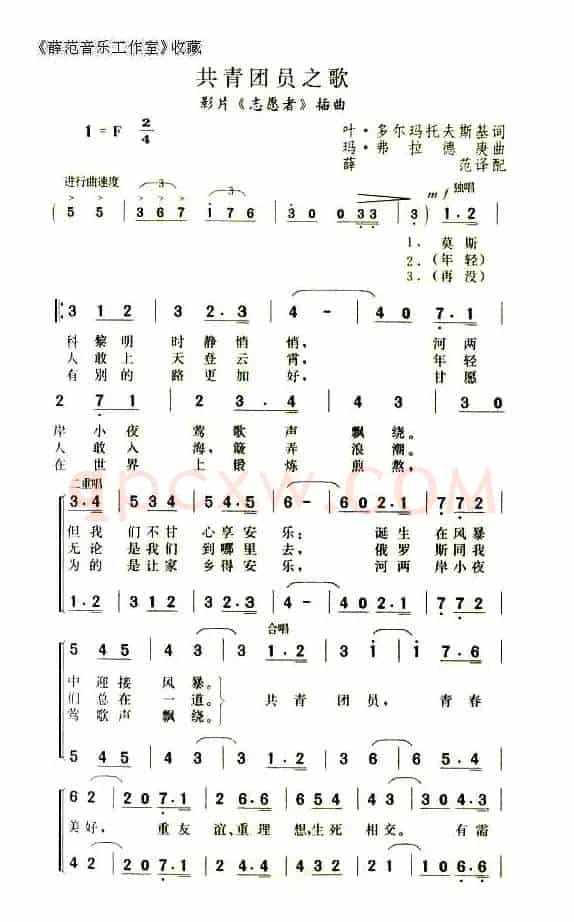 《薛范音乐工作室》收藏
共青团员之歌
影片《志愿者》插曲
1=F 2/4
叶·多尔玛托夫斯基词
玛·弗拉德庚曲
薛范译配
进行曲速度
mf 独唱
( 5 5 | 3 6 7 1 7 6 | 3 0 0 3 3 | 3 ) 1.2 |
1.莫斯
2.(年轻)
3.(再没)
3 1 2 | 3 2.3 | 4 - | 4 0 7.1 |
科黎明时静悄悄,河两
人敢上天登云霄,年轻
有别的路更加好,甘愿
2 7 1 | 2 3.4 | 4 3 | 3 0 |
岸小夜莺歌声飘绕。
人敢入海,簸弄浪潮。
在世界上锻炼煎熬,
二重唱
3.4 | 5 3 4 | 5 4.5 | 6 - | 6 0 2.1 | 7 7 2 |
但我们不甘心享安乐;诞生在风暴
无论是我们到哪里去,俄罗斯同我
为的是让家乡得安乐,河两岸小夜
1.2 | 3 1 2 | 3 2.3 | 4 - | 4 0 2.1 | 7 7 2 |
合唱
5 4 5 | 4 3 | 3 1.2 | 3 i | i 7.6 |
中迎接风暴。
们总在一道。
莺歌声飘绕。
共青团员,青春
5 4 5 | 4 3 | 3 1.2 | 3 3 | 3 5.4 |
6 2 | 2 0 7.1 | 2 6.6 | 6 5 4 | 4 3 | 3 0 1.7 |
美好,重友谊、重理想,生死相交。有需
4 2 | 2 0 7.1 | 2 4.4 | 4 3 2 | 2 1 | 1 0 6.6 |
qpcxw.com